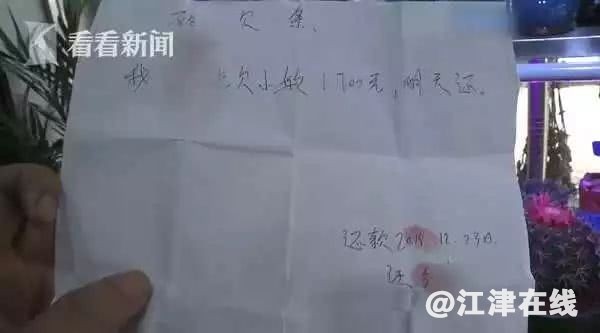 看看新闻
欠条.
我 欠小敏1700元,明天还。
还款2018.12.23日.
@江津在线